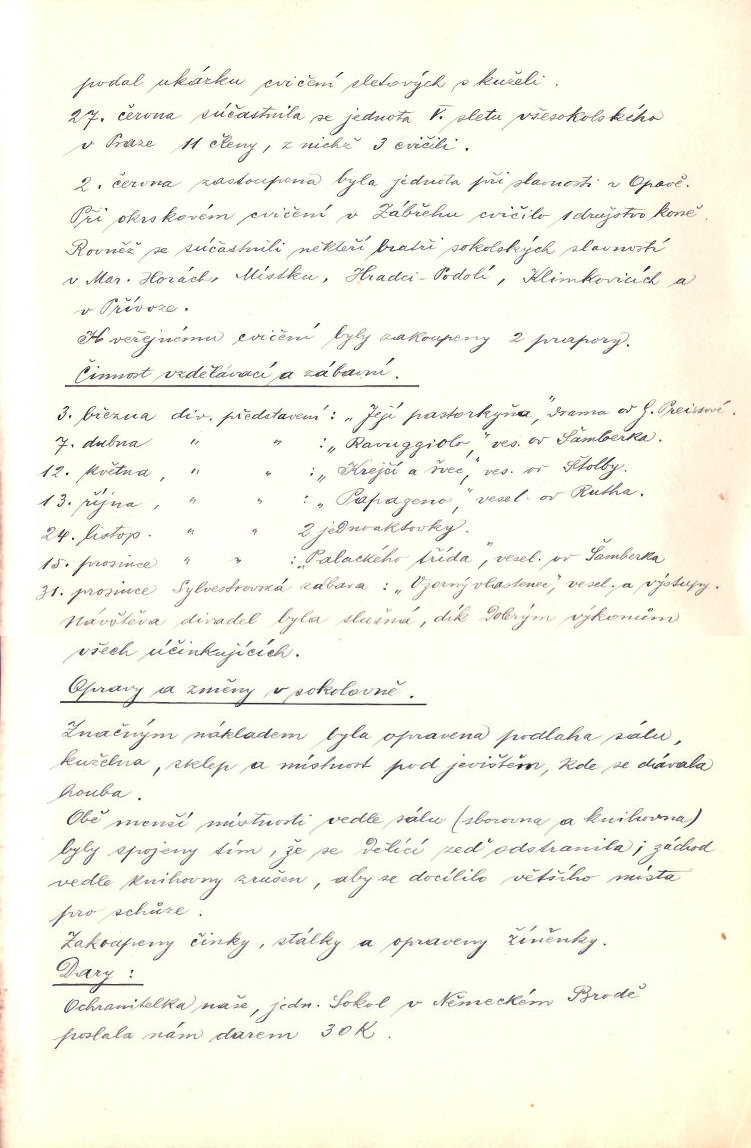 podal ukázku cvičení sletových s kuželi.
27. června súčastnila se jednota V. sletu všesokolského
v Praze 11 členy, z nichž 3 cvičili.
2. června zastoupena byla jednota při slavnosti v Opavě.
Při okrskovém cvičení v Zábřehu cvičilo 1 družstvo koně.
Rovněž se súčastnili někteří bratři sokolských slavností
v Mar. Horách, Místku, Hradci-Podolí, Klimkovicích a
v Přívoze.
K veřejnému cvičení byly zakoupeny 2 prapory.
Činnost vzdělávací a zábavní.
3. března div. představení: „Její pastorkyňa," drama od G. Preissové.
7. dubna " " : „Ravuggiolo," ves. od Šamberka.
12. května, " " : „Krejčí a švec," ves. od Štolby.
13. října, " " : „Papageno," vesel. od Rutha.
24. listop. " " 2 jednoaktovky.
15. prosince " " : „Palackého třída", vesel. od Šamberka
31. prosince Sylvestrovská zábava: „Vzorný vlastenec," vesel. a výstupy.
Návštěva divadel byla slušná, dík dobrým výkonům
všech účinkujících.
Opravy a změny v sokolovně.
Značným nákladem byla opravena podlaha sálu,
kuželna, sklep a místnost pod jevištěm, kde se dávala
houba.
Obě menší místnosti vedle sálu (sborovna a knihovna)
byly spojeny tím, že se dělící zeď odstranila; záchod
vedle knihovny zrušen, aby se docílilo většího místa
pro schůze.
Zakoupeny činky, stálky a opraveny žíněnky.
Dary:
Ochranitelka naše, jedn. Sokol v Německém Brodě
poslala nám darem 30 K.